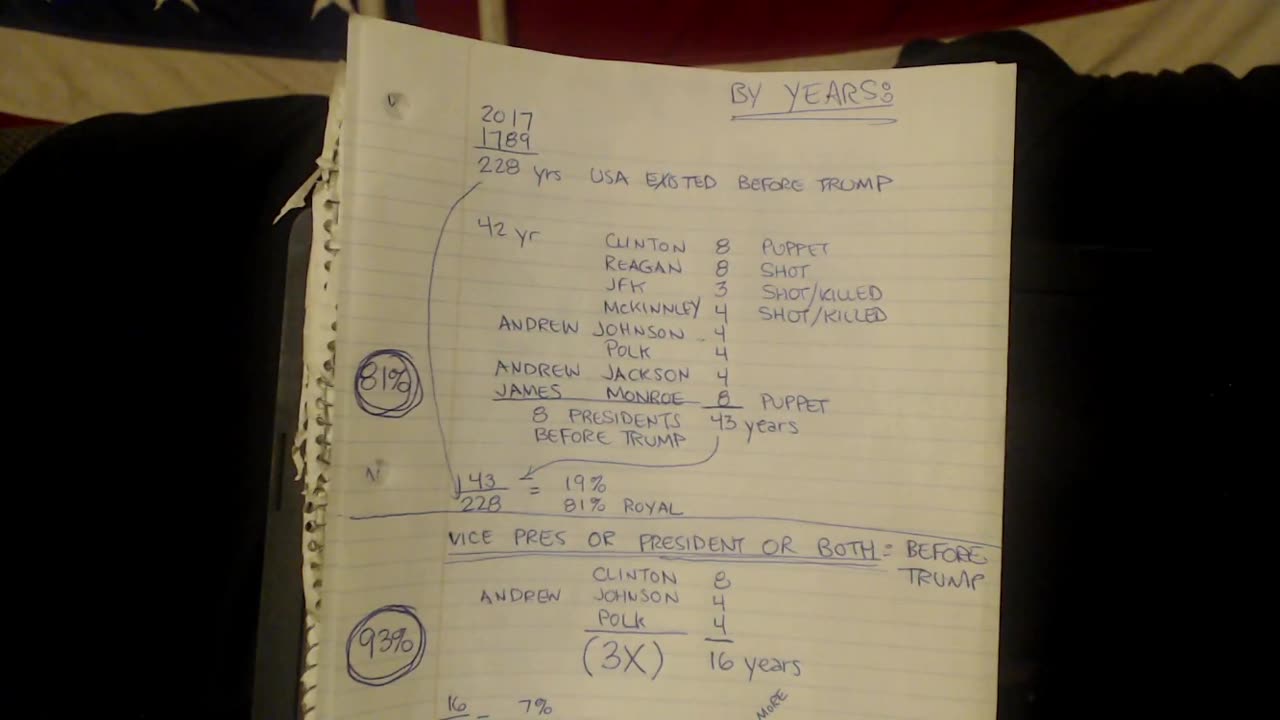 BY YEARS:
2017
1789
228 yrs USA EXISTED BEFORE TRUMP
42 yr
CLINTON 8 PUPPET
REAGAN 8 SHOT
JFK 3 SHOT/KILLED
McKINNLEY 4 SHOT/KILLED
ANDREW JOHNSON 4
POLK 4
ANDREW JACKSON 4
JAMES MONROE 8 PUPPET
8 PRESIDENTS 43 years
BEFORE TRUMP
81%
43 = 19%
228 81% ROYAL
VICE PRES OR PRESIDENT OR BOTH = BEFORE
TRUMP
CLINTON 8
ANDREW JOHNSON 4
POLK 4
93%
(3X) 16 years
16 = 7%
MORE